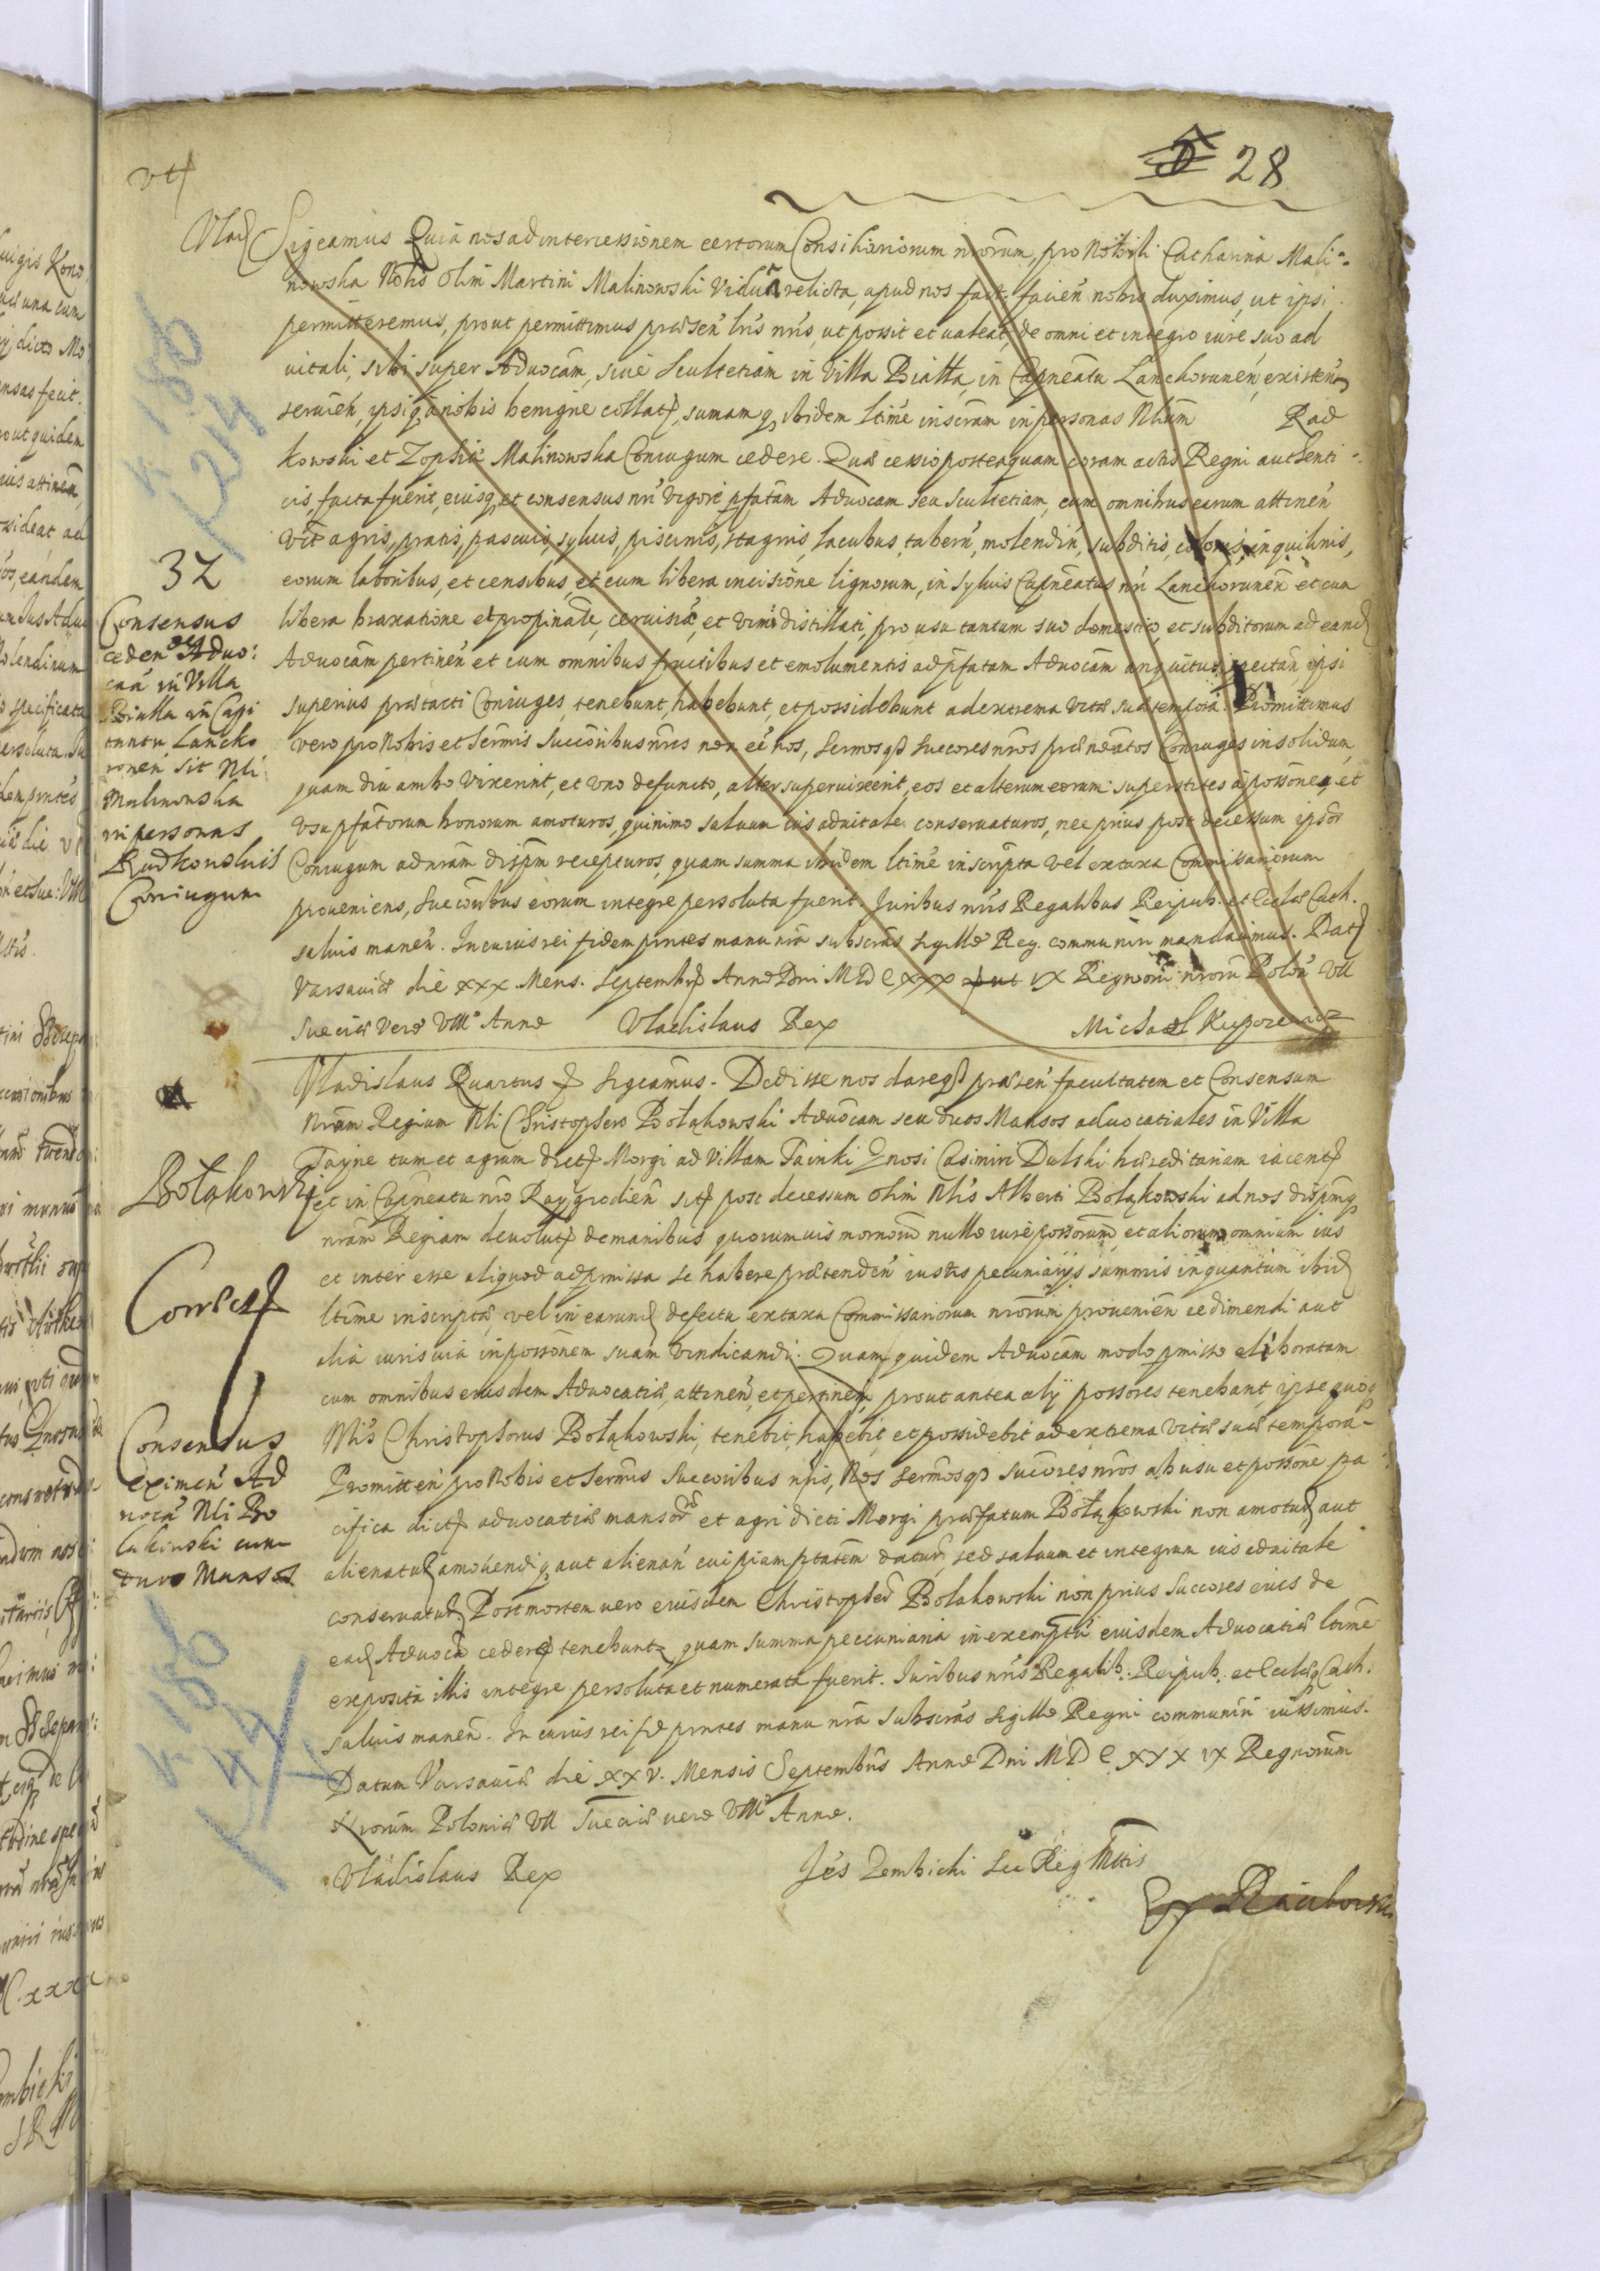 28
Vlad Sigeamus Quia nos ad intercessionem certorum Consiliariorum nrorum, pro Nobili Catharina Mali-
nowska Nobis olim Martini Malinowski Vidua relicta, apud nos fact. facien nobis duximus, ut ipsi
permitteremus, prout permittimus præsen lris nris ut possit et valeat, de omni et integro iure suo ad
vitali, sibi super Advocam, sive Scultetiam in Villa Biatta, in Capneatu Lanckorunen existen
servien, ipsiq a nobis benigne collat, sumamq ibidem ltime inscram in personas Nlium Rad
kowski et Zophiæ Malinowska Coniugum cedere. Quæ cessio posteaquam coram actis Regni authenti
cis, facta fuerit, eiusq et consensus nri vigore pfatam Advocam seu Scultetiam, cum omnibus earum attinen
vtt agris, pratis, pascuis, syluis, piscinis, stagnis, lacubus, tabern, molendin, subditis, colonis, inquilinis,
eorum laboribus, et censibus, et cum libera incisione lignorum, in syluis Capneatus nri Lanckorunen et cum
libera braxatione et propinate, ceruisiæ, et vini distillati, pro usu tantum suo domestico, et subditorum ad eand
Advocam pertinen et cum omnibus fructibus et emolumentis ad pfatam Advocam antiquitus spectan, ipsi
superius prætacti Coniuges, tenebunt, habebunt, et possidebunt ad extrema vitæ suæ tempora. Promittimus
vero pro Nobis et Sermis Succoribus nris non ee nos, Sermosq Succores nros prænoatos Coniuges in solidum,
quam diu ambo vixerint, et vno defuncto, alter superuixerit, eos et alterum eorum superstites a possoneq et
vsu pfatorum bonorum amoturos, quinimo saluum ius aduitale conseruaturos, nec prius post decessum ipsor
Coniugum ad nram dispm recepturos, quam summa ibidem ltime inscripta vel ex taxa Commissariorum
proueniens, Succoribus eorum integre persoluta fuerit. Iuribus nris Regalibus Reipub. et Ecclæ Cath.
saluis manen. In cuius rei fidem prntes manu nra subscras sigillo Reg. communiri mandauimus. Dat
Varsauiæ die XXX Mens. Septembr Anno Dni MDCXXX IX Regnorum nrorum Polon VII
Sueciæ vero VIII Anno Vladislaus Rex Michael
32
Consensus
ceden Advo:
cam in Villa
Biatta in Capi
taneatu Lancko
ronen sit Nli
Malinowska
in personas
Radkowskis
Coniugum
Vladislaus Quartus Sigeamus. Dedisse nos dareq præsen facultatem et Consensum
Nrum Regium Nli Christophero Bołakowski Advocam seu duos Mansos aduocatiales in Villa
Tayne tum et agrum dict Morgi ad Villam Tainki Gnosi Casimiri Dulski hæreditariam iacent
et in Capneatu nro Raygrodien sit post decessum olim Nlis Alberti Bołakowski ad nos dispmq
nram Regiam deuolut de manibus quorumuis mornom nullo iure possorum, et aliorum omnium ius
et inter esse aliquod ad pmissa se habere prætenden iustis pecuniarijs summis in quantum ibid
ltime inscriptæ, vel in earund defectu ex taxa Commissariorum nrorum prouenien redimendi aut
alia iuris via in possonem suam vindicandi. Quam quidem Advocam modo pmisso eliboratam
cum omnibus eiusdem Advocatiæ, attinen, et pertinen, prout antea alij possores tenebant, ipse quoq
Nlis Christophorus Bołakowski, tenebit, habebit, et possidebit ad extrema vitæ suæ tempora.
Promitten pro Nobis et Sermis Succoribus nris, Nos Sermosq Succores nros ab usu et possone pa
cifica dict aduocatiæ mansor et agri dicti Morgi præfatum Bołakowski non amotur aut
alienatur amouendiq aut alienan cuipiam ptatem datur, sed saluum et integrum ius aduitale
conseruatur. Post mortem uero eiusdem Christophori Bołakowski non prius Succores eius de
ead Advoca cedere tenebuntr, quam summa peccuniaria in exemptu eiusdem Advocatiæ ltime
exposita illis integre persoluta et numerata fuerit. Iuribus nris Regalib. Reipub. et Ecclæq Cath.
saluis manen. In cuius rei fid prntes manu nra subscras sigillo Regni communiri iussimus.
Datum Varsauiæ die XXV. Mensis Septembris Anno Dni MDCXXXIX Regnorum
Nrorum Poloniæ VII Sueciæ uero VIII Anno.
Vladislaus Rex Jes Zembicki Sec Reg Mttis
Bołakowski
Consensus
eximen Ad
uocā Nli Bo
lakowski cum
duo Mansos